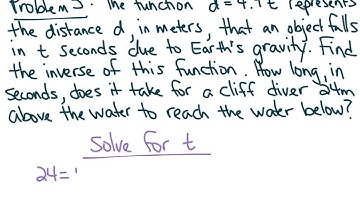 Problem 3: The function d = 4.9t represents
the distance d, in meters, that an object falls
in t seconds due to Earth's gravity. Find
the inverse of this function. How long, in
seconds, does it take for a cliff diver 24m
above the water to reach the water below?
Solve for t
24=